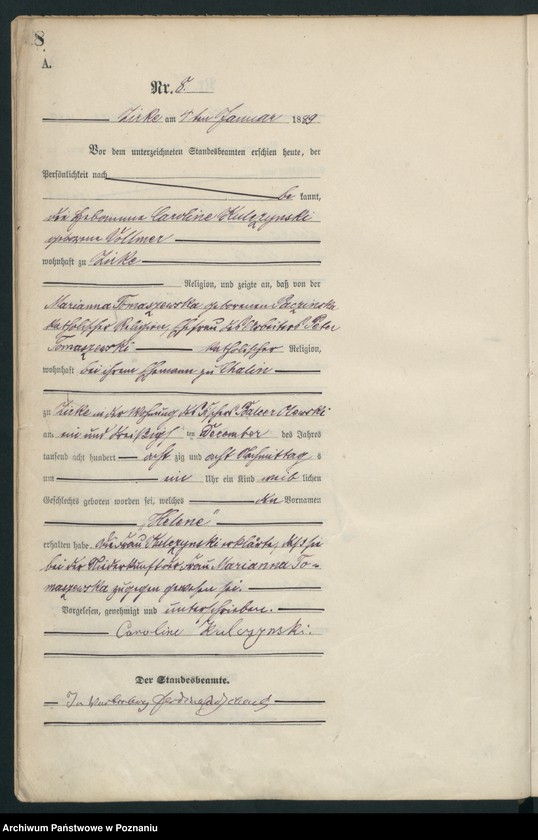 8
A.
Nr. 8.
Zirke am 5ten Januar 1889
Vor dem unterzeichneten Standesbeamten erschien heute, der
Persönlichkeit nach
be kannt,
die Hebamme Caroline Kulczynski
geborene Vollmer
wohnhaft zu Zirke
Religion, und zeigte an, daß von der
Marianna Tomaszewska geborenen
katholischer Religion, Ehefrau des Arbeiters Peter
Tomaszewski katholischer Religion,
wohnhaft bei ihrem Ehemann zu Chalin
zu Zirke in der Wohnung des Balcer Olewski
am ein und dreißigsten December des Jahres
tausend acht hundert acht zig und acht Nachmittag s
um ein Uhr ein Kind weib lichen
Geschlechts geboren worden sei, welches den Vornamen
"Helene"
erhalten habe. Die Frau Kulczynski erklärte, daß sie
bei der Niederkunft der Frau Marianna To-
maszewska zugegen gewesen sei.
Vorgelesen, genehmigt und unterschrieben.
Caroline Kulczynski.
Der Standesbeamte.
In
Archiwum Państwowe w Poznaniu